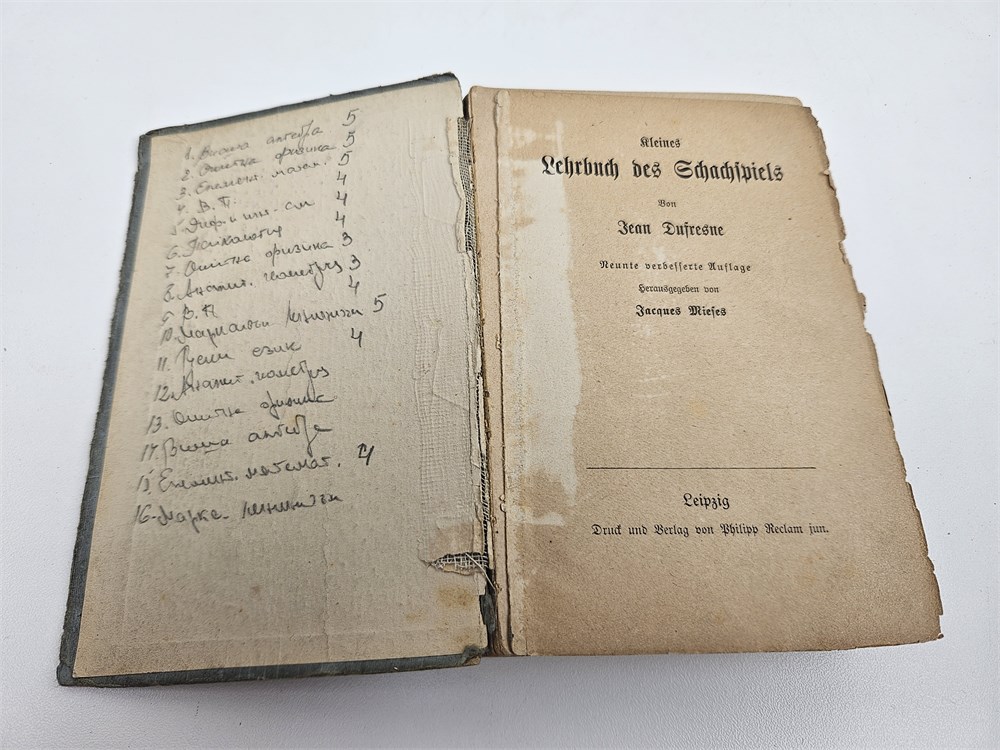 1. Висша алгебра 5
2. Опитна физика 5
3. Елемент. матем. 5
4. В. П. 4
5. Диф. и инт. см 4
6. Психология 4
7. Опитна физика 3
8. Аналит. геометрия 3
9. В. П 4
10. Марксизъм ленинизъм 5
11. Руски език 4
12. Аналит. геометрия
13. Опитна физика
14. Висша алгебра
15. Елемент. математ. 4
16. Маркс. ленинизъм
Kleines
Lehrbuch des Schachspiels
Von
Jean Dufresne
Neunte verbesserte Auflage
Herausgegeben von
Jacques Mieses
Leipzig
Druck und Verlag von Philipp Reclam jun.